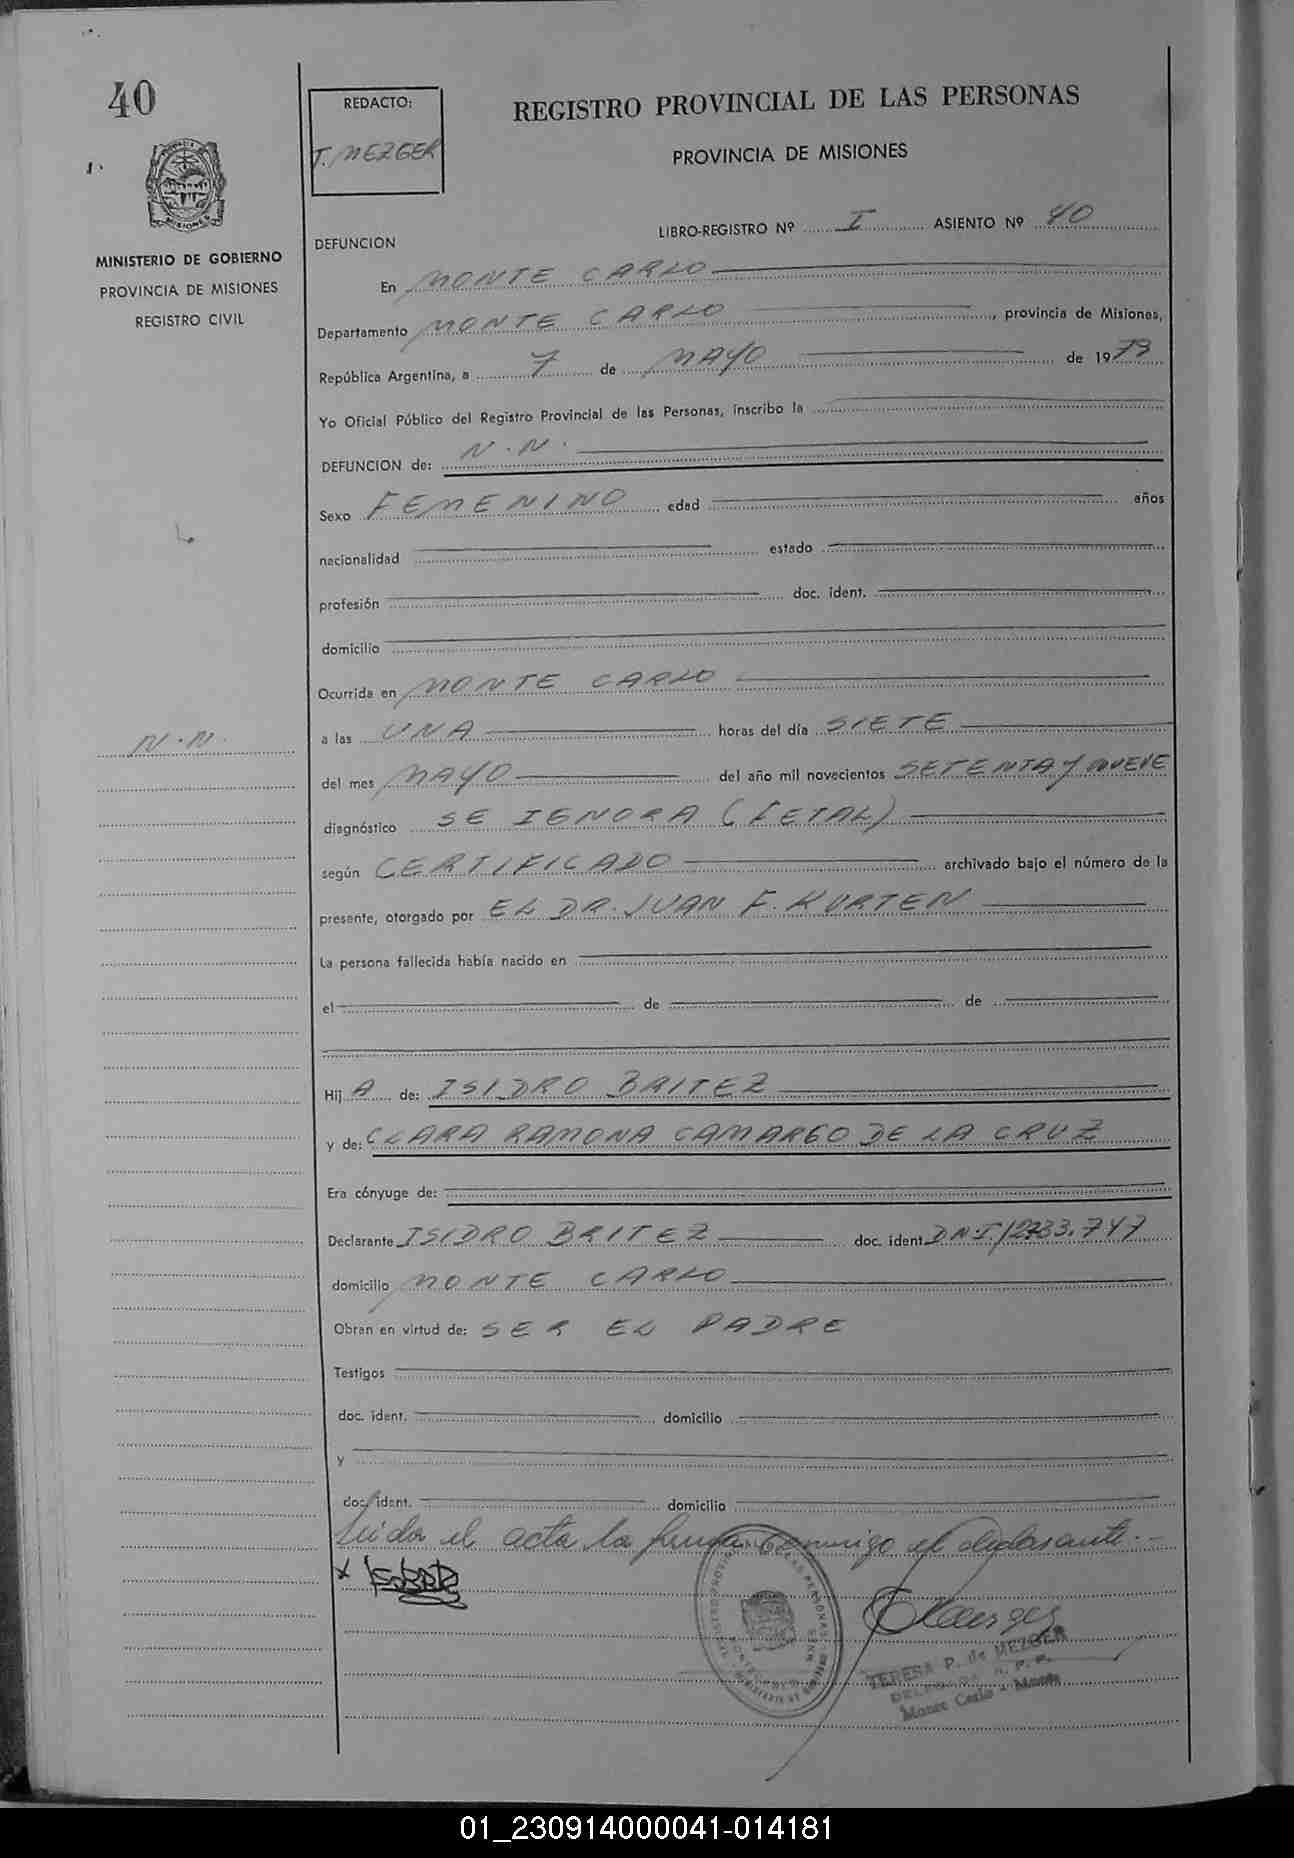 40
REDACTO:
T. MEZGER
REGISTRO PROVINCIAL DE LAS PERSONAS
PROVINCIA DE MISIONES
MISIONES
MINISTERIO DE GOBIERNO
PROVINCIA DE MISIONES
REGISTRO CIVIL
LIBRO-REGISTRO Nº I ASIENTO Nº 40
DEFUNCION
En MONTE CARLO
Departamento MONTE CARLO, provincia de Misiones,
República Argentina, a 7 de MAYO de 1979
Yo Oficial Público del Registro Provincial de las Personas, inscribo la
DEFUNCION de: N.N.
Sexo FEMENINO edad años
nacionalidad estado
profesión doc. ident.
domicilio
Ocurrida en MONTE CARLO
N.N.
a las UNA horas del día SIETE
del mes MAYO del año mil novecientos SETENTA Y NUEVE
diagnóstico SE IGNORA (FETAL)
según CERTIFICADO archivado bajo el número de la
presente, otorgado por EL DR. JUAN F. KURTEN
La persona fallecida había nacido en
el de de
Hij A de: ISIDRO BRITEZ
y de: CLARA RAMONA CAMARGO DE LA CRUZ
Era cónyuge de:
Declarante ISIDRO BRITEZ doc. ident D.N.I.
domicilio MONTE CARLO
Obran en virtud de: SER EL PADRE
Testigos
doc. ident. domicilio
y
doc. ident. domicilio
Leida el acta la firma conmigo el declarante.-
x
TERESA P. de MEZGER
DELEGADA R. P. P.
Monte Carlo - Mnes
01_230914000041-014181